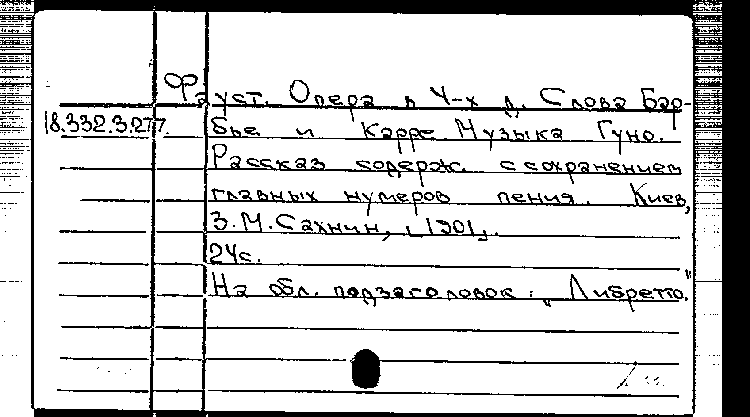 Фауст. Опера в 4-х д. Слова Бар-
18.332.3.277. бье и Карре Музыка Гуно.
Рассказ содерж. с сохранением
главных нумеров пения. Киев,
З. М. Сахнин, [1901].
24с.
На обл. подзаголовок: „Либретто."